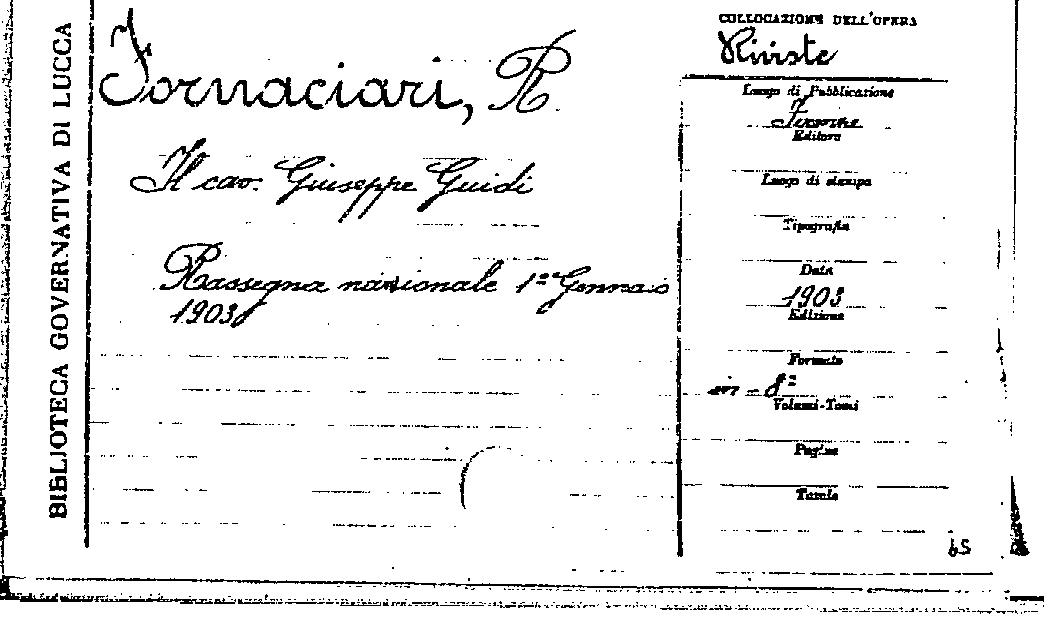 BIBLIOTECA GOVERNATIVA DI LUCCA
Fornaciari, R.
Il cav. Giuseppe Guidi
Rassegna nazionale 1º Gennaio
1903
COLLOCAZIONE DELL'OPERA
Riviste
Luogo di Pubblicazione
Firenze
Editore
Luogo di stampa
Tipografia
Data
1903
Edizione
Formato
in-8º
Volumi-Tomi
Pagine
Tavole